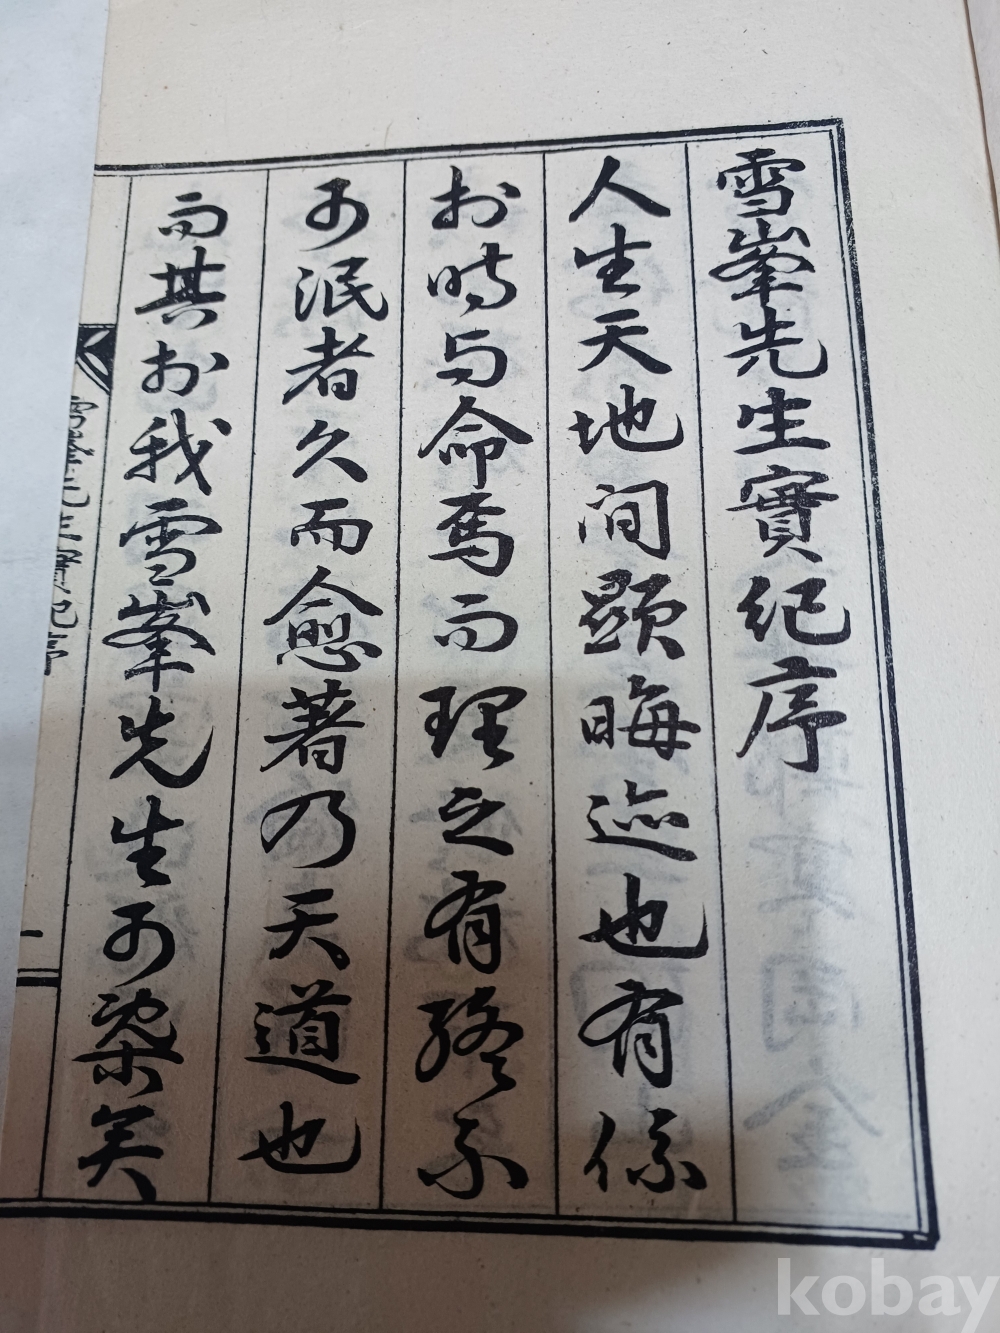 雪峯先生實紀序
人生天地間顯晦迹也有係
於時与命焉而理之有終不
可泯者久而愈著乃天道也
而其於我雪峯先生可槩矣
雪峯先生實紀序
一
kobay